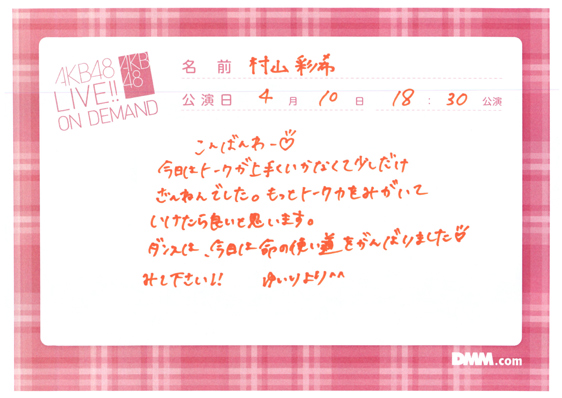 AKB48
LIVE!!
ON DEMAND
AKB
48
名前 村山彩希
公演日 4月10日 18:30公演
こんばんわー♡
今日はトークが上手くいかなくて少しだけ
ざんねんでした。もっとトーク力をみがいて
いけたら良いと思います。
ダンスは、今日は命の使い道をがんばりました♡
みて下さい!! ゆいりより^^
DMM.com